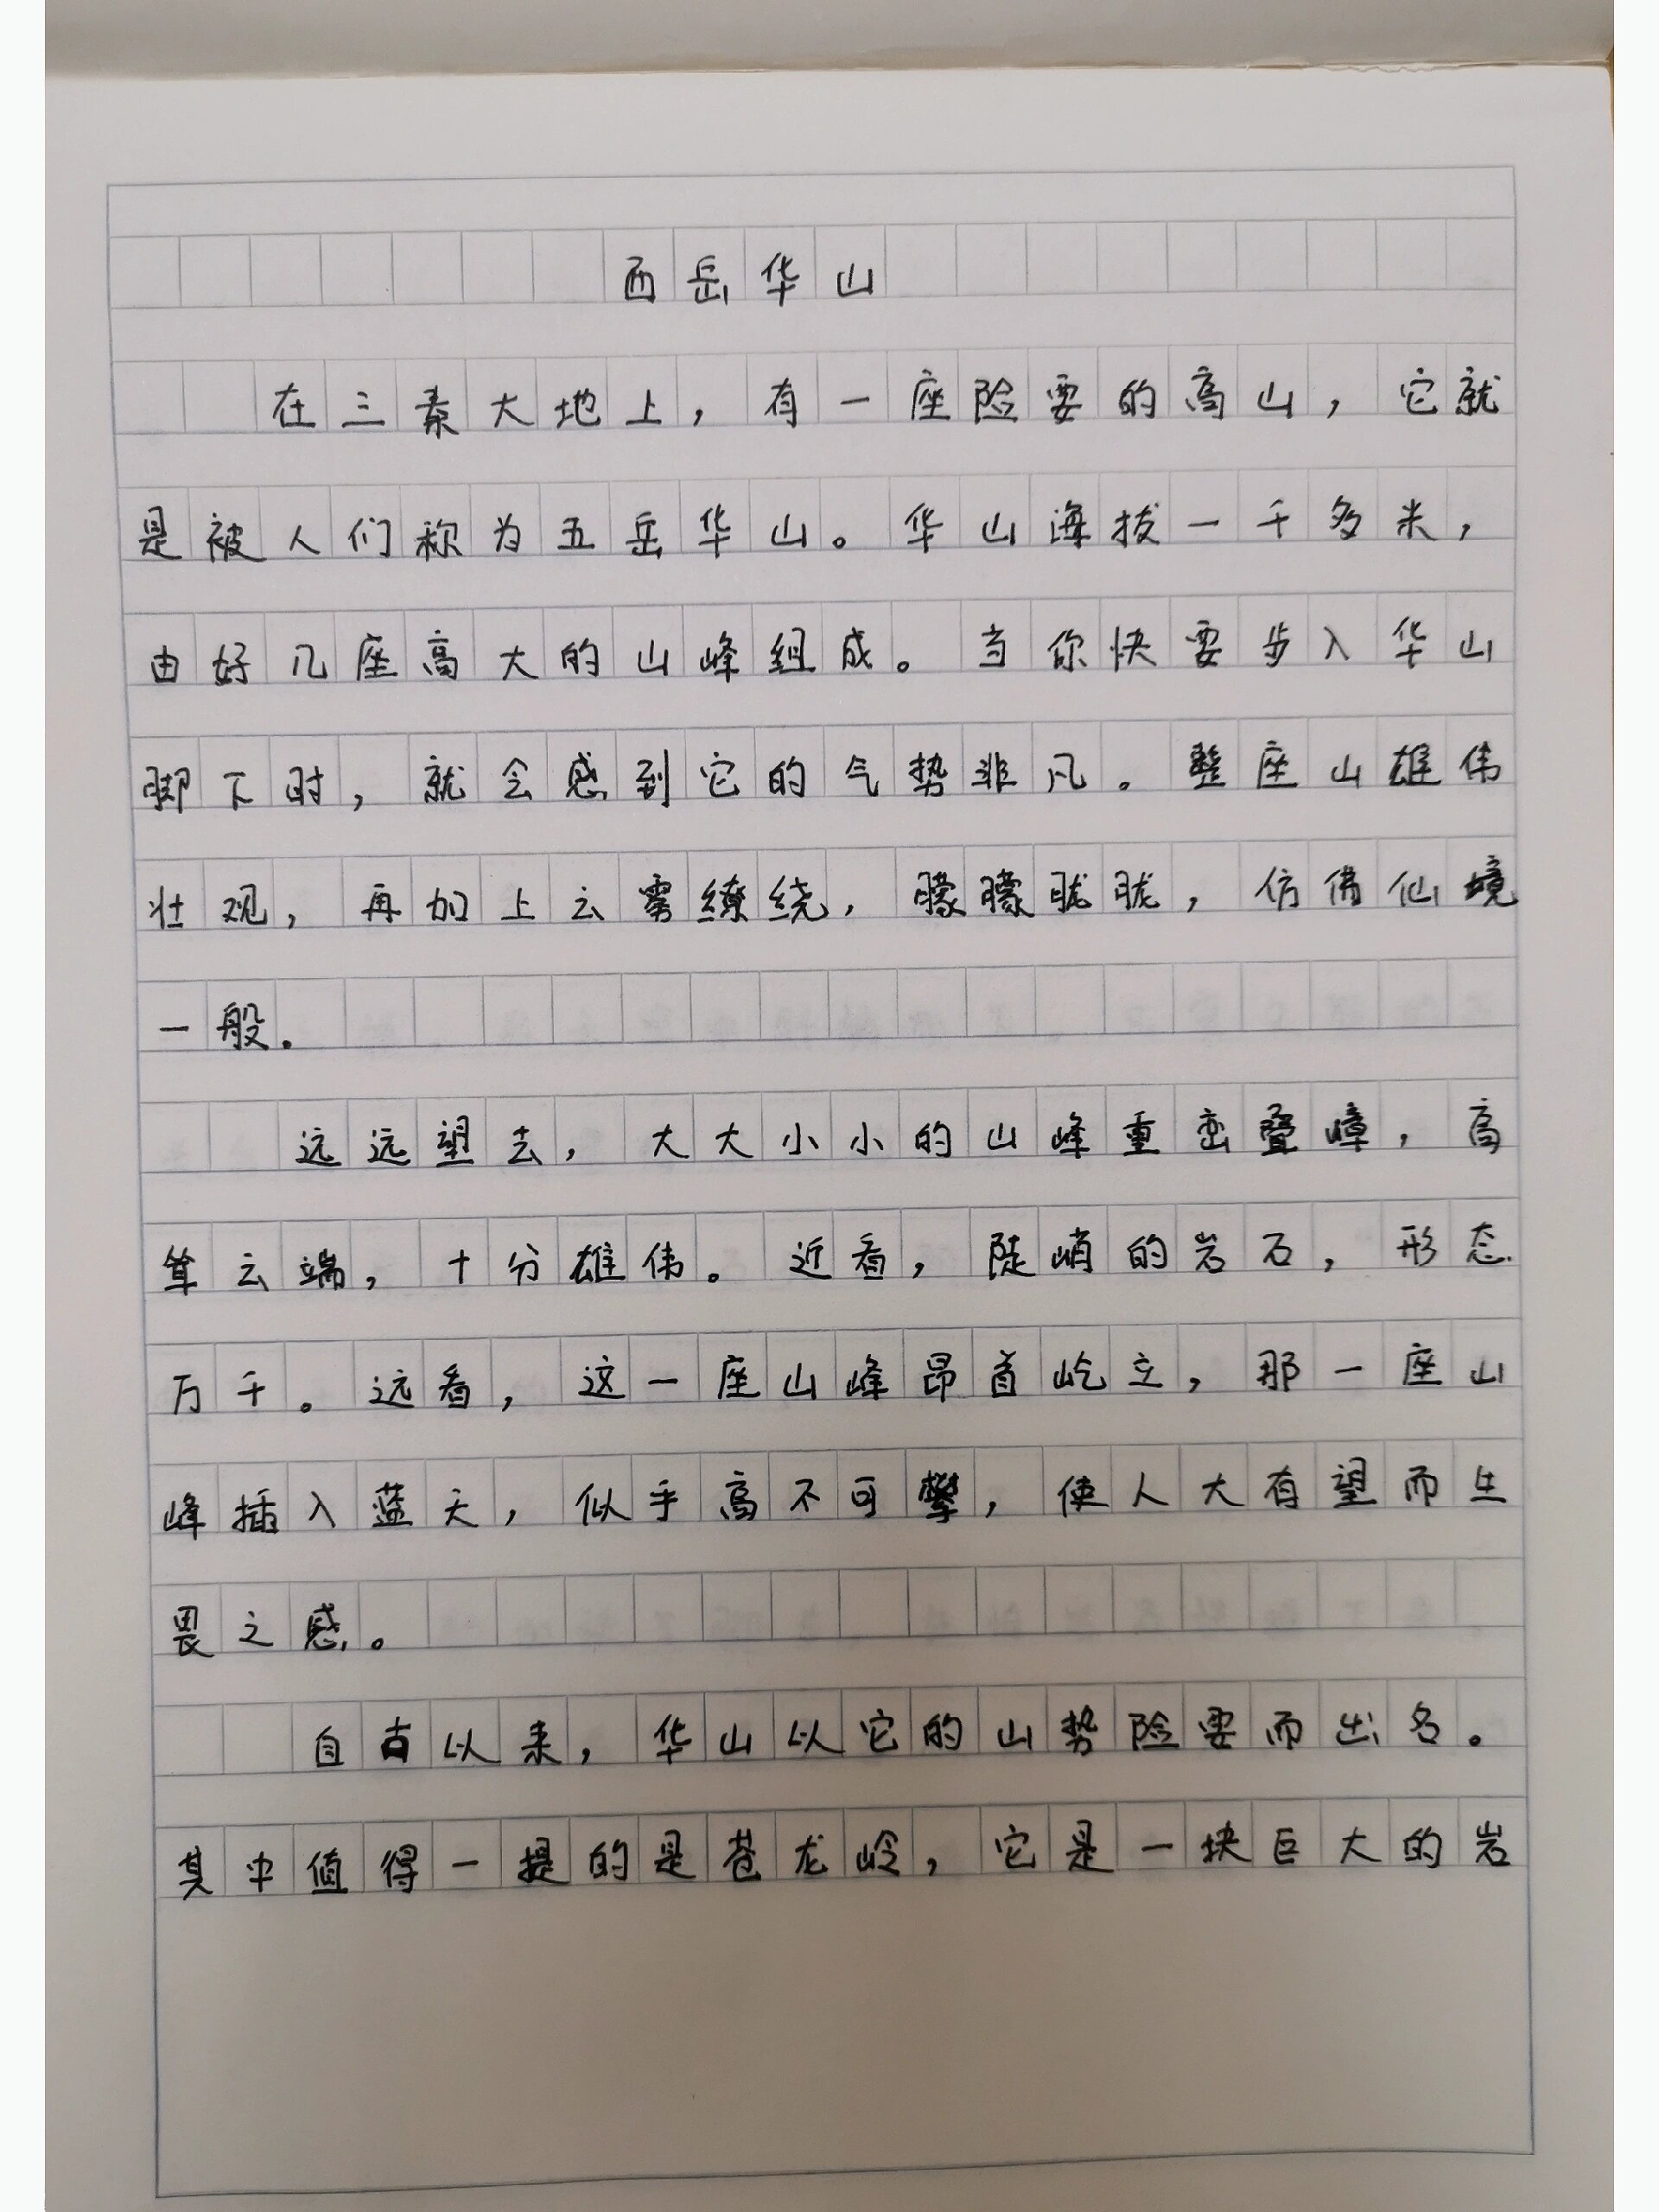 西岳华山
在三素大地上，有一座险要的高山，它就
是被人们称为五岳华山。华山海拔一千多米，
由好几座高大的山峰组成。当你快要步入华山
脚下时，就会感到它的气势非凡。整座山雄伟
壮观，再加上云雾缭绕，朦朦胧胧，仿佛仙境
一般。
远远望去，大大小小的山峰重峦叠嶂，高
耸云端，十分雄伟。近看，陡峭的岩石，形态
万千。远看，这一座山峰昂首屹立，那一座山
峰插入蓝天，似乎高不可攀，使人大有望而生
畏之感。
自古以来，华山以它的山势险要而出名。
其中值得一提的是苍龙岭，它是一块巨大的岩